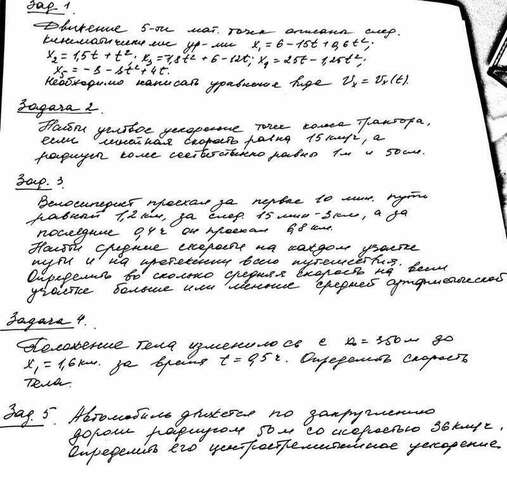 Зад. 1.
Движение 5-ти мат. точек описаны след.
кинематическими ур-ми x₁ = 6 - 15t + 0,6t²;
x₂ = 1,5t + t²; x₃ = 7,8t² + 6 - 12t; x₄ = 25t - 1,25t²;
x₅ = -3 - 3t² + 4t.
Необходимо написать уравнение вида Vₓ = Vₓ(t).
Задача 2
Найти угловое ускорение точек колёс трактора,
если линейная скорость равна 15 км/ч, а
радиусы колес соответственно равны 1м и 50см.
Зад. 3
Велосипедист проехал за первые 10 мин. пути
равный 1,2 км, за след. 15 мин - 3 км, а за
последние 0,4 ч он проехал 0,8 км.
Найти средние скорости на каждом участке
пути и на протяжении всего путешествия.
Определить во сколько средняя скорость на всем
участке больше или меньше средней арифметической
Задача 4.
Положение тела изменилось с x₀ = 350м до
x₁ = 1,6 км. за время t = 0,5 ч. Определить скорость
тела.
Зад. 5. Автомобиль движется по закруглению
дороги радиусом 50 м со скоростью 36 км/ч.
Определить его центростремительное ускорение.